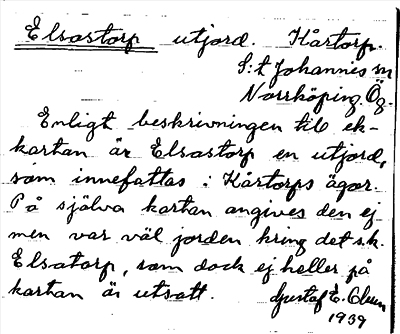 Elsastorp utjord. Kårtorp.
S:t Johannes sn
Norrköping. Ög.
Enligt beskrivningen till ek-
kartan är Elsastorp en utjord,
som innefattas i Kårtorps ägor.
På själva kartan angives den ej
men var väl jorden kring det s.k.
Elsatorp, som dock ej heller på
kartan är utsatt. Gustaf E. Olsson
1939